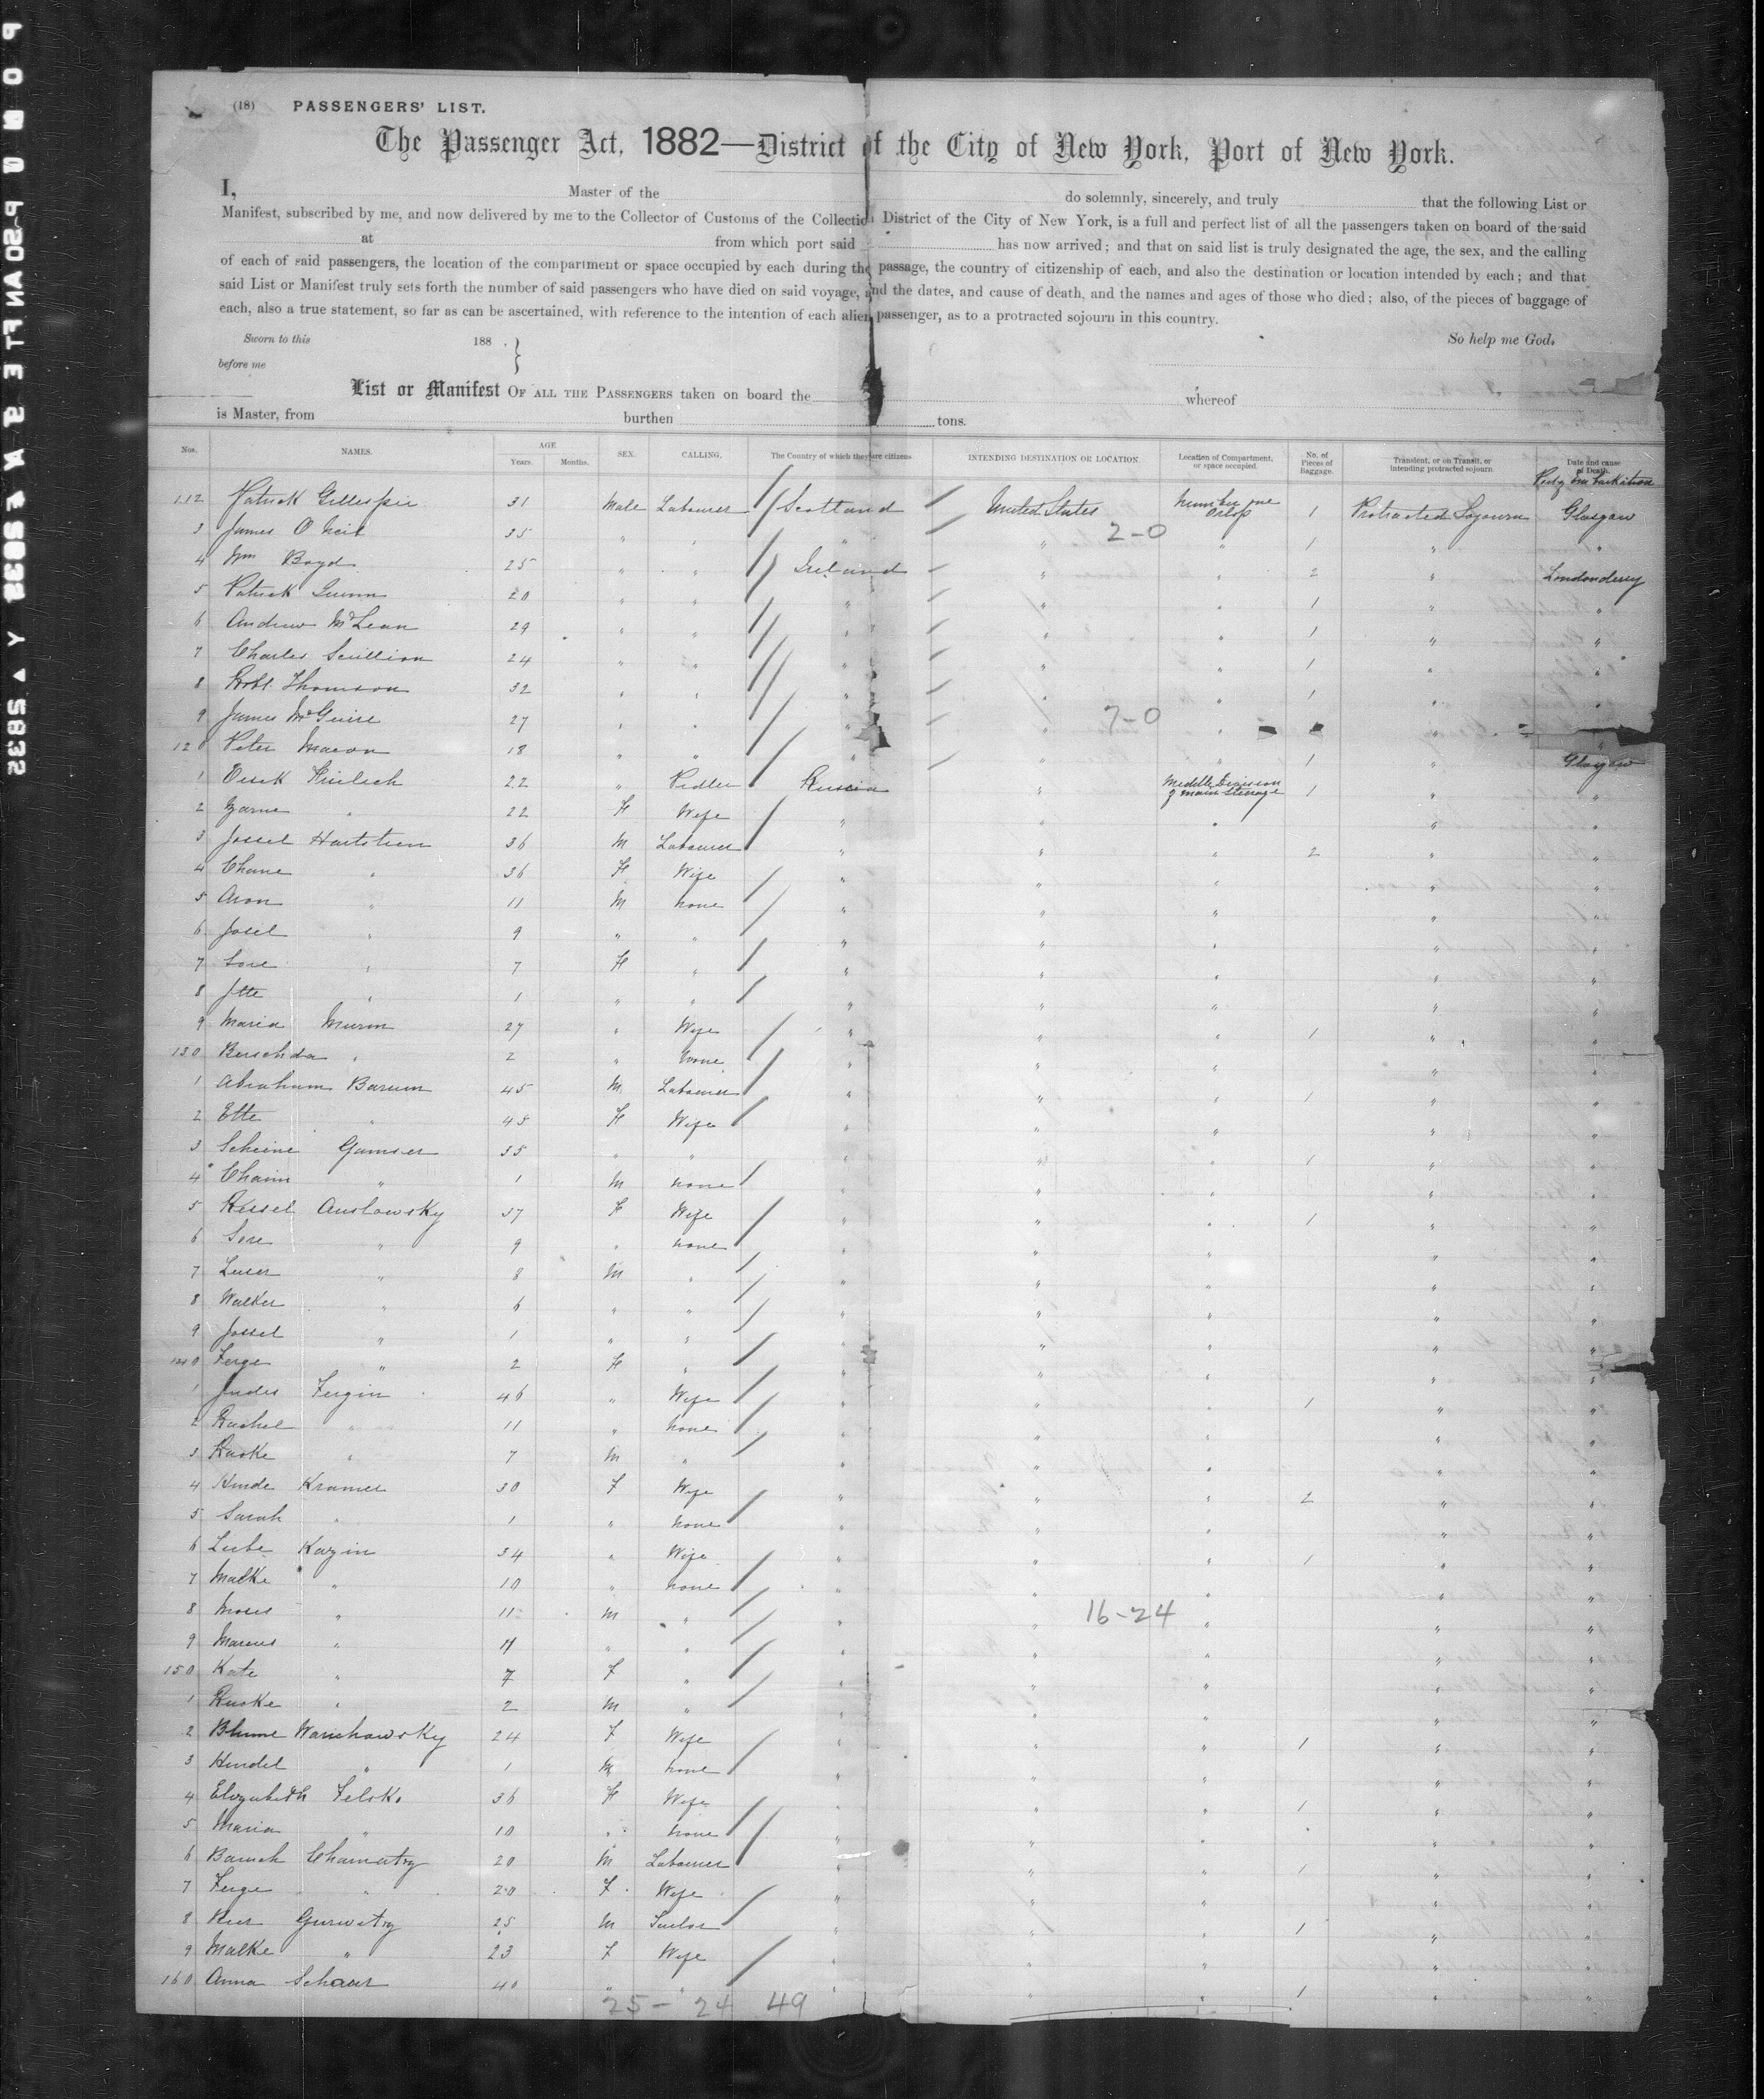 (18) PASSENGERS' LIST.
The Passenger Act, 1882—District of the City of New York, Port of New York.
I, Master of the do solemnly, sincerely, and truly that the following List or
Manifest, subscribed by me, and now delivered by me to the Collector of Customs of the Collection District of the City of New York, is a full and perfect list of all the passengers taken on board of the said
at from which port said has now arrived; and that on said list is truly designated the age, the sex, and the calling
of each of said passengers, the location of the compartment or space occupied by each during the passage, the country of citizenship of each, and also the destination or location intended by each; and that
said List or Manifest truly sets forth the number of said passengers who have died on said voyage, and the dates, and cause of death, and the names and ages of those who died; also, of the pieces of baggage of
each, also a true statement, so far as can be ascertained, with reference to the intention of each alien passenger, as to a protracted sojourn in this country.
Sworn to this 188 . So help me God.
before me
List or Manifest OF ALL THE PASSENGERS taken on board the whereof
is Master, from burthen tons.
Nos. NAMES. AGE Years. Months. SEX. CALLING. The Country of which they are citizens. INTENDING DESTINATION OR LOCATION. Location of Compartment, or space occupied. No. of Pieces of Baggage. Transient, or on Transit, or intending protracted sojourn. Date and cause of Death.
Embarkation
112 Patrick Gillespie 31 Male Labourer Scotland United States Number one Orlop 1 Protracted Sojourn Glasgow
3 James O Neil 35 " " " " " 1 " "
2-0
4 Wm Boyd 25 " " Ireland " " 2 " Londonderry
5 Patrick 20 " " " " " 1 " "
6 Andrew McLean 29 " " " " " 1 " "
7 Charles Scullion 24 " " " " " 1 " "
8 Robt. Thomson 32 " " " " " 1 " "
9 James McGuire 27 " " " " " "
7-0
120 Peter Macon 18 " " " " " 1 " Glasgow
1 22 " Pedler Russia " Middle Division of main Steerage 1 " "
2 " 22 F Wife " " " " "
3 Jossel Hartstein 36 M Labourer " " " 2 " "
4 Chane " 36 F Wife " " " " "
5 Aron " 11 M none " " " " "
6 Josel " 9 " " " " " " "
7 Sore " 7 F " " " " " "
8 Itte " 1 " " " " " " "
9 Maria 27 " Wife " " " 1 " "
130 " 2 " none " " " " "
1 Abraham Barum 45 M Labourer " " " 1 " "
2 Ette " 45 F Wife " " " " "
3 Scheine 35 " " " " " 1 " "
4 Chaim " 1 M none " " " " "
5 Kessel Auslowsky 37 F Wife " " " 1 " "
6 Sore " 9 " none " " " " "
7 Leser " 8 M " " " " " "
8 Walker " 6 " " " " " " "
9 Jossel " 1 " " " " " " "
140 Feige " 2 F " " " " " "
1 Judes Feigin 46 " Wife " " " 1 " "
2 Rachel " 11 " none " " " " "
3 " 7 M " " " " " "
4 Hinde Kramer 30 F Wife " " " 2 " "
5 Sarah " 1 " none " " " " "
6 Liebe Kazin 34 " Wife " " " 1 " "
7 Malke " 10 " none " " " " "
8 Moses " 11 M " " " " " "
16-24
9 Marcus " " " " " " " "
150 Kate " 7 F " " " " " "
1 " 2 M " " " " " "
2 Blume Warschawsky 24 F Wife " " " 1 " "
3 Hindel " 1 M none " " " " "
4 Elizabeth 36 F Wife " " " 1 " "
5 Maria " 10 " none " " " " "
6 Baruch 20 M Labourer " " " 1 " "
7 Feige " 20 F Wife " " " " "
8 Gurwitz 25 M Tailor " " " 1 " "
9 Malke " 23 F Wife " " " " "
160 Anna Schaar 40 " " " " " 1 " "
25 - 24 49